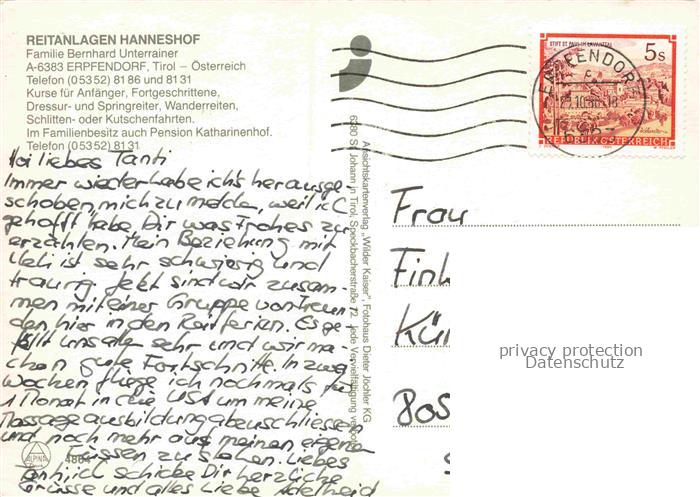 REITANLAGEN HANNESHOF
Familie Bernhard Unterrainer
A-6383 ERPFENDORF, Tirol – Österreich
Telefon (05352) 8186 und 8131
Kurse für Anfänger, Fortgeschrittene,
Dressur- und Springreiter, Wanderreiten,
Schlitten- oder Kutschenfahrten.
Im Familienbesitz auch Pension Katharinenhof.
Telefon (05352) 8131
Hoi liebes Tanti
Immer wieder habe ich's herausge-
schoben mich zu melden, weil ich
gehofft habe Dir was Frohes zu
erzählen. Mein Beziehung mit
Ueli ist sehr schwierig und
traurig. Jetzt sind wir zusam-
men mit einer Gruppe von Freun-
den hier in den Reitferien. Es ge-
fällt uns allen sehr und wir ma-
chen gute Fortschritte. In zwei
Wochen fliege ich nochmals für
1 Monat in die USA um meine
Massageausbildung abzuschliessen
und noch mehr auf meinen eigenen
Füssen zu stehen. Liebes
Tanti, ich schicke Dir herzliche
Grüsse und alles Liebe Adelheid
ALPINA
Ansichtskartenverlag „Wilder Kaiser", Fotohaus Dieter Jöchler KG
6380 St. Johann in Tirol, Speckbacherstraße 72. Jede Vervielfältigung verboten
STIFT ST. PAUL IM LAVANTTAL
5s
REPUBLIK ÖSTERREICH
ERPFENDORF
Frau
privacy protection
Datenschutz